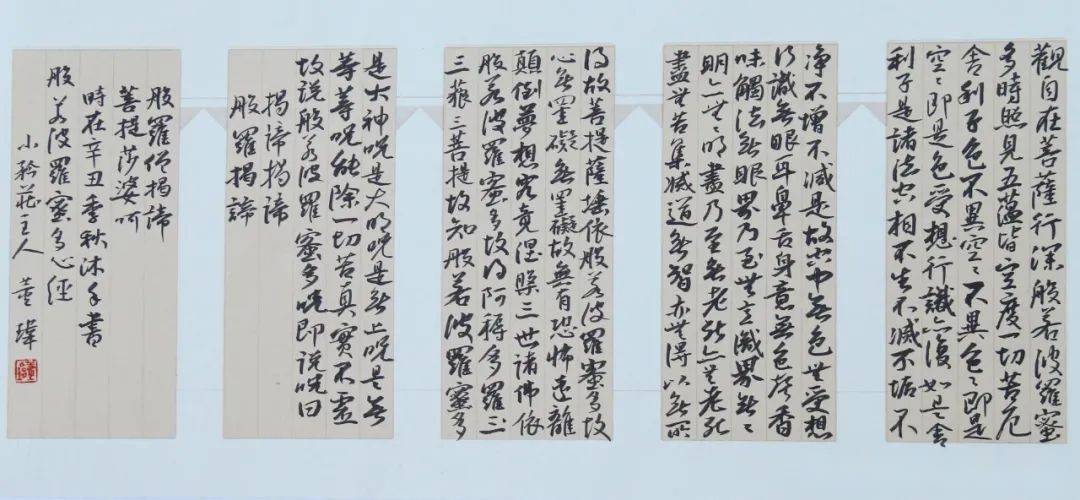 觀自在菩薩行深般若波羅蜜
多時照見五蘊皆空度一切苦厄
舍利子色不異空〻不異色〻即是
空〻即是色受想行識亦復如是舍
利子是諸法空相不生不滅不垢不
净不增不減是故空中無色無受想
行識無眼耳鼻舌身意無色聲香
味觸法無眼界乃至無意識界無〻
明亦無〻明盡乃至無老死亦無老死
盡無苦集滅道無智亦無得以無所
得故菩提薩埵依般若波羅蜜多故
心無罣礙無罣礙故無有恐怖遠離
顛倒夢想究竟涅槃三世諸佛依
般若波羅蜜多故得阿耨多羅三
三藐三菩提故知般若波羅蜜多
是大神咒是大明咒是無上咒是無
等等咒能除一切苦真實不虛
故説般若波羅蜜多咒即説咒曰
揭諦揭諦
般羅揭諦
般羅僧揭諦
菩提莎婆呵
時在辛丑季秋沐手書
般若波羅蜜多心經
小矜莊主人 董瑋